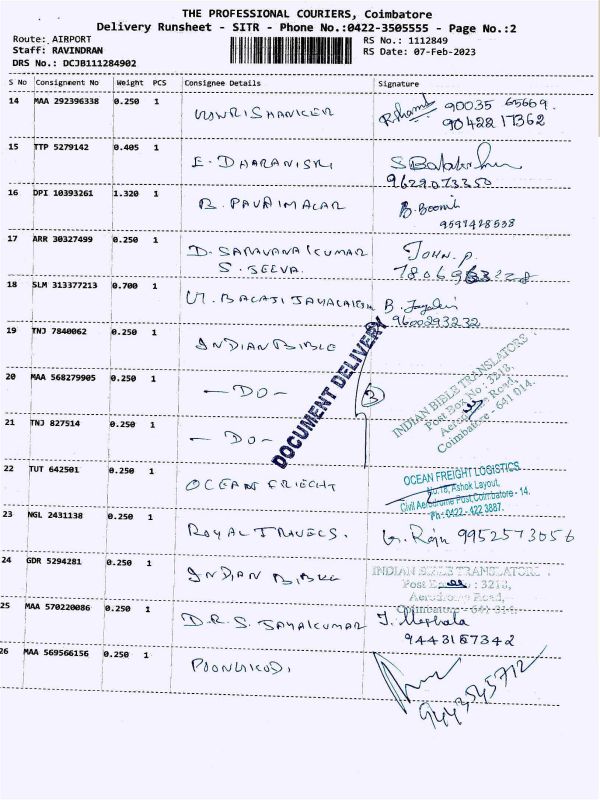 THE PROFESSIONAL COURIERS, Coimbatore
Delivery Runsheet - SITR - Phone No.:0422-3505555 - Page No.:2
Route: AIRPORT
RS No.: 1112849
Staff: RAVINDRAN
RS Date: 07-Feb-2023
DRS No.: DCJB111284902
S No Consignment No Weight PCS Consignee Details Signature
14 MAA 292396338 0.250 1
90422 17362
15 TTP 5279142 0.405 1 E. DHARANISRI
9629073350
16 DPI 10393261 1.320 1 B. PAVAIMALAR B. Boomik
9597428538
17 ARR 30327499 0.250 1 D. SARAVANA KUMAR JOHN. P.
S. JEEVA.
18 SLM 313377213 0.700 1
9600293232
19 TNJ 7840062 0.250 1 INDIAN BIBLE
20 MAA 568279905 0.250 1 - DO - 3
21 TNJ 827514 0.250 1 - DO -
DOCUMENT DELIVERY
INDIAN BIBLE TRANSLATORS
Post Box No : 3213,
Road,
Coimbatore - 641 014.
22 TUT 642501 0.250 1 OCEAN FRIECHT
OCEAN FREIGHT LOGISTICS
No.18, Ashok Layout,
Civil Aerodrome Post, Coimbatore - 14.
Ph : 0422 - 422 3887.
23 NGL 2431138 0.250 1 ROYAL TRAVELS. G. Raju 9952573056
24 GDR 5294281 0.250 1 INDIAN BIBLE
INDIAN BIBLE TRANSLATORS
Post : 3213,
Aerodrome Road,
Coimbatore
25 MAA 570220086 0.250 1 D.R.S. JAYAKUMAR J. Meghala
9443187342
26 MAA 569566156 0.250 1
9443545712